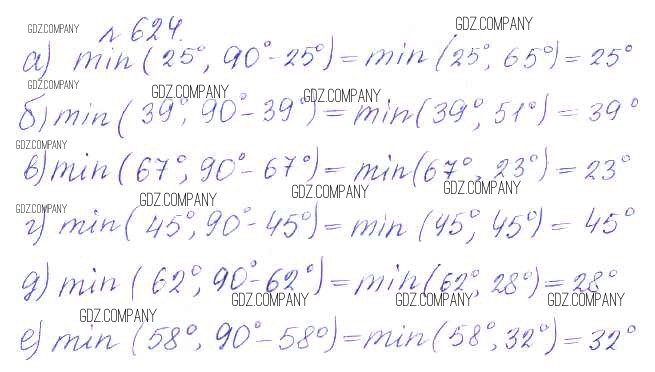 № 624.
GDZ.COMPANY GDZ.COMPANY
а) min(25°, 90°-25°)=min(25°, 65°)=25°
GDZ.COMPANY GDZ.COMPANY GDZ.COMPANY
б) min(39°, 90°-39°)=min(39°, 51°)=39°
GDZ.COMPANY
в) min(67°, 90°-67°)=min(67°, 23°)=23°
GDZ.COMPANY GDZ.COMPANY GDZ.COMPANY GDZ.COMPANY
г) min(45°, 90°-45°)=min(45°, 45°)=45°
д) min(62°, 90°-62°)=min(62°, 28°)=28°
GDZ.COMPANY GDZ.COMPANY GDZ.COMPANY GDZ.COMPANY
е) min(58°, 90°-58°)=min(58°, 32°)=32°